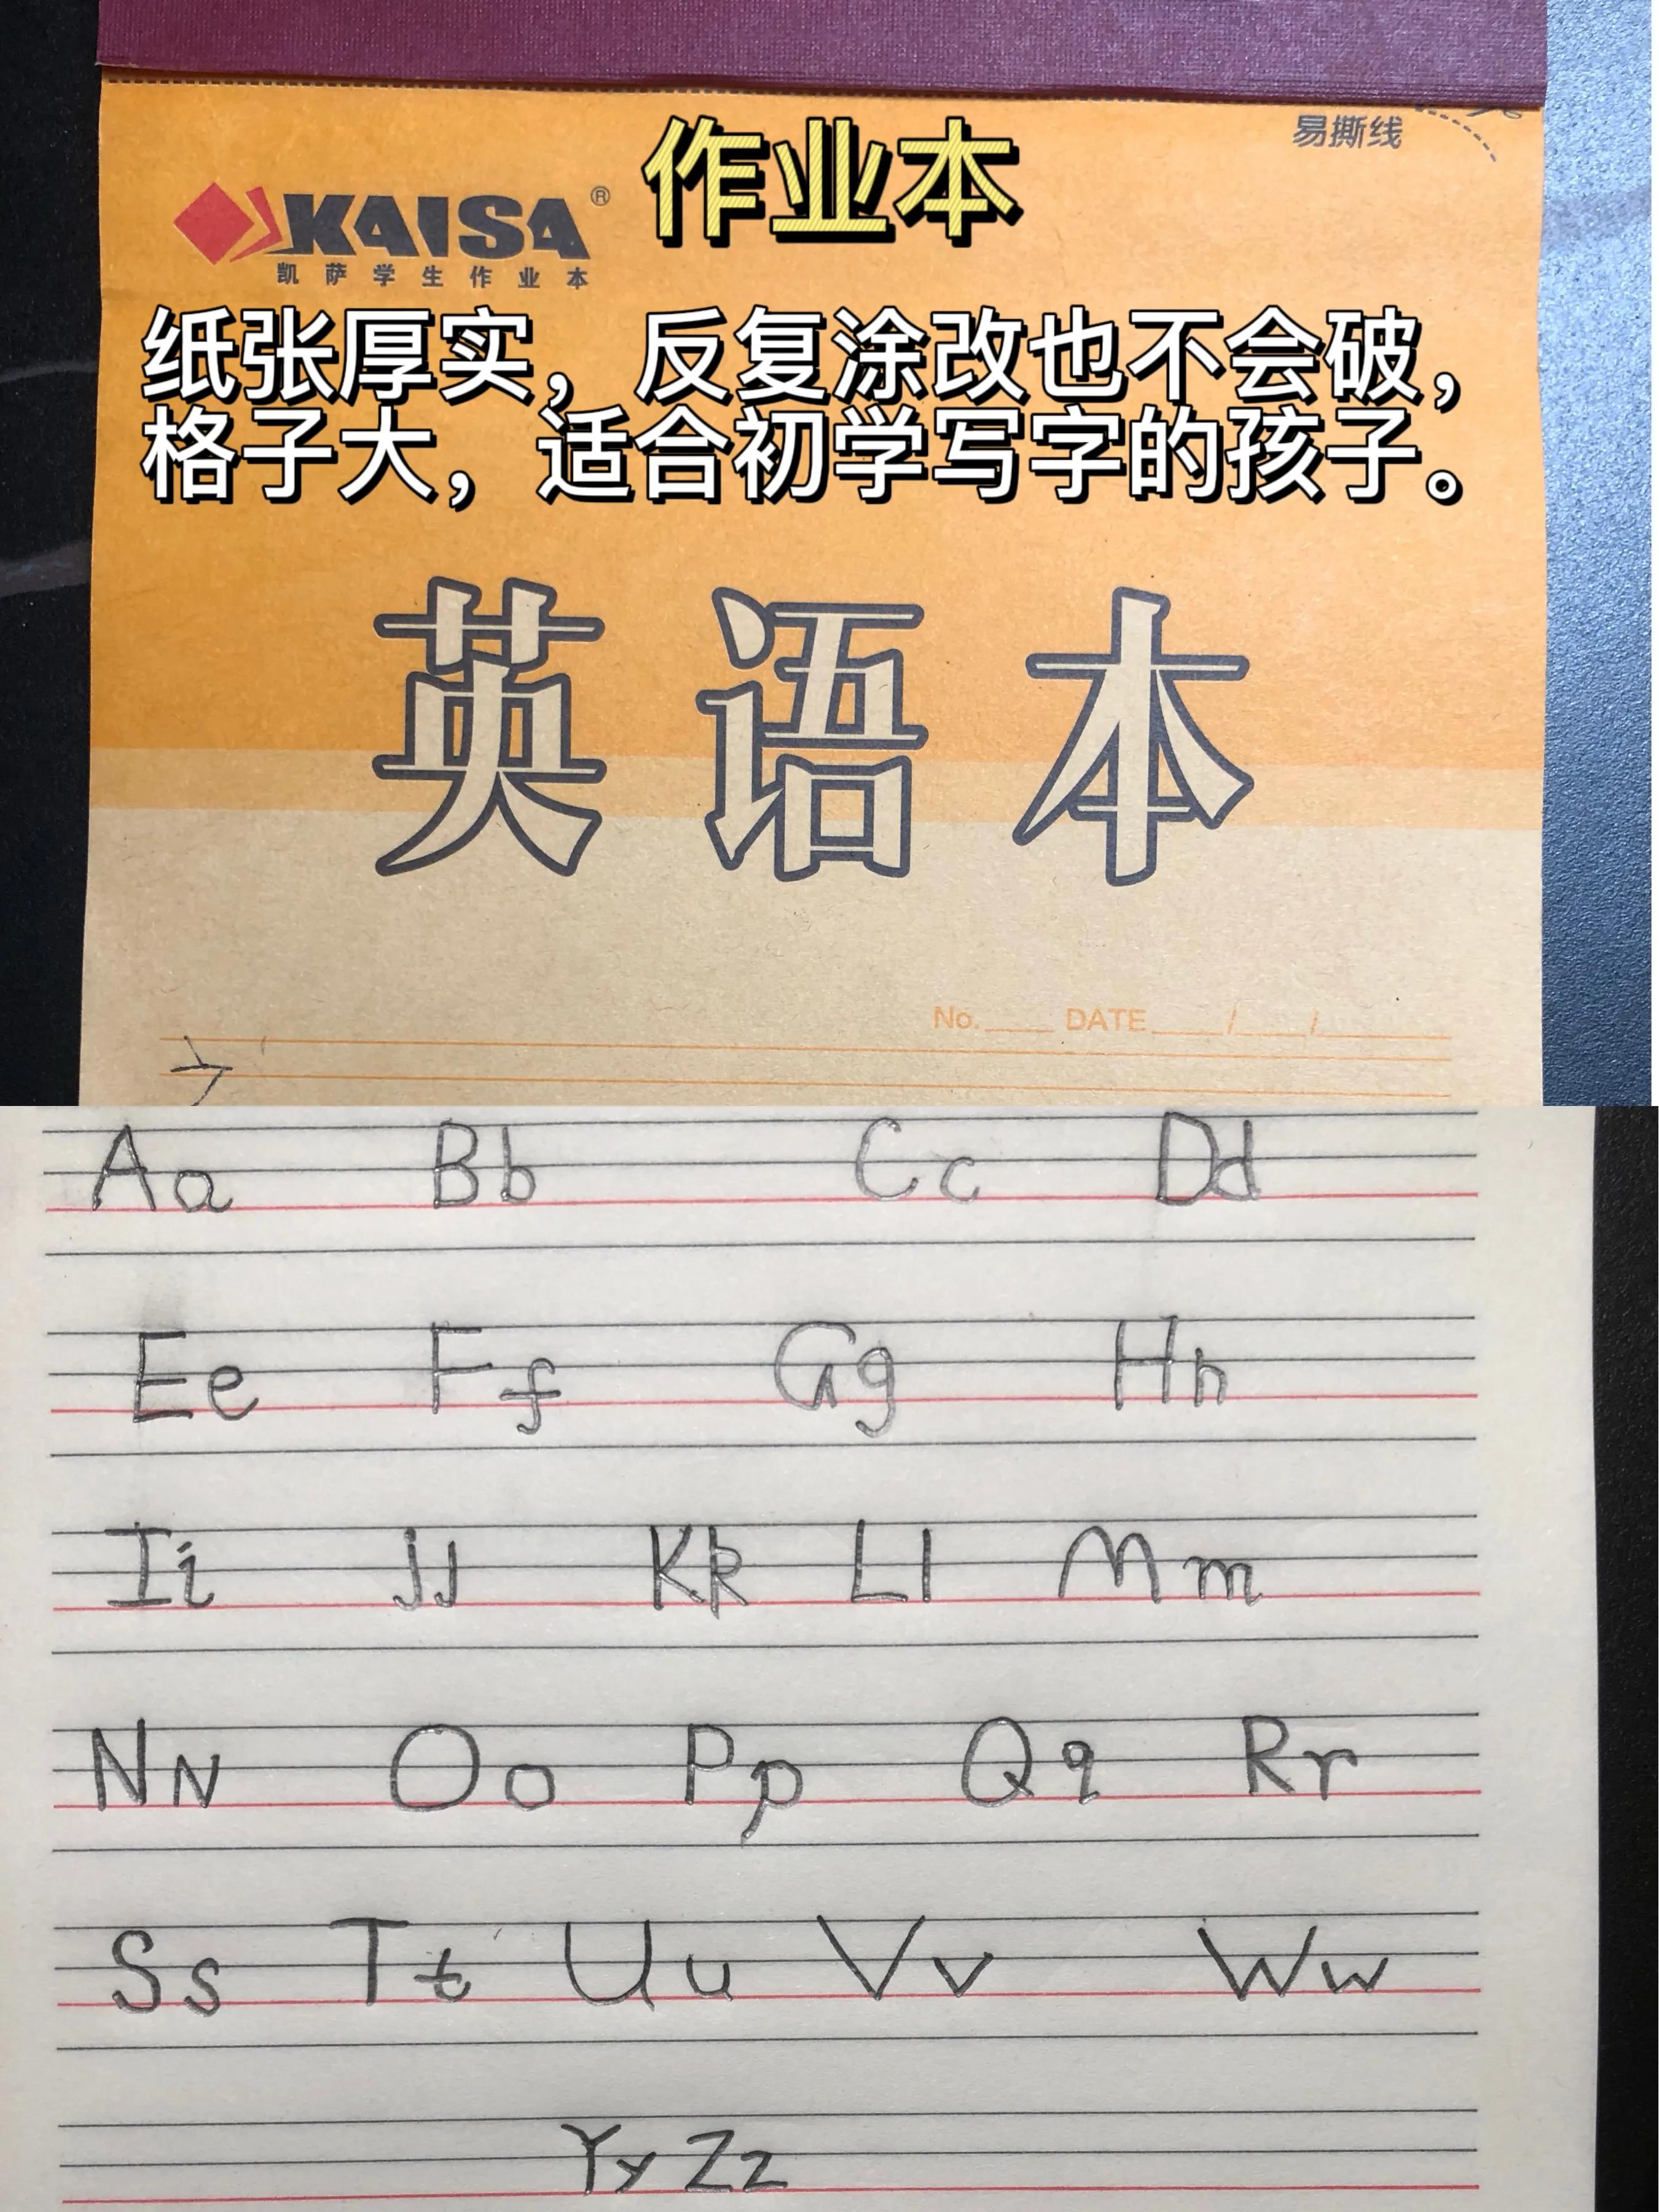 易撕线
作业本
KAISA®
凯萨学生作业本
纸张厚实，反复涂改也不会破，
格子大，适合初学写字的孩子。
英语本
No.____ DATE____/____/
Aa Bb Cc Dd
Ee Ff Gg Hh
Ii Jj Kk Ll Mm
Nn Oo Pp Qq Rr
Ss Tt Uu Vv Ww
Yy Zz